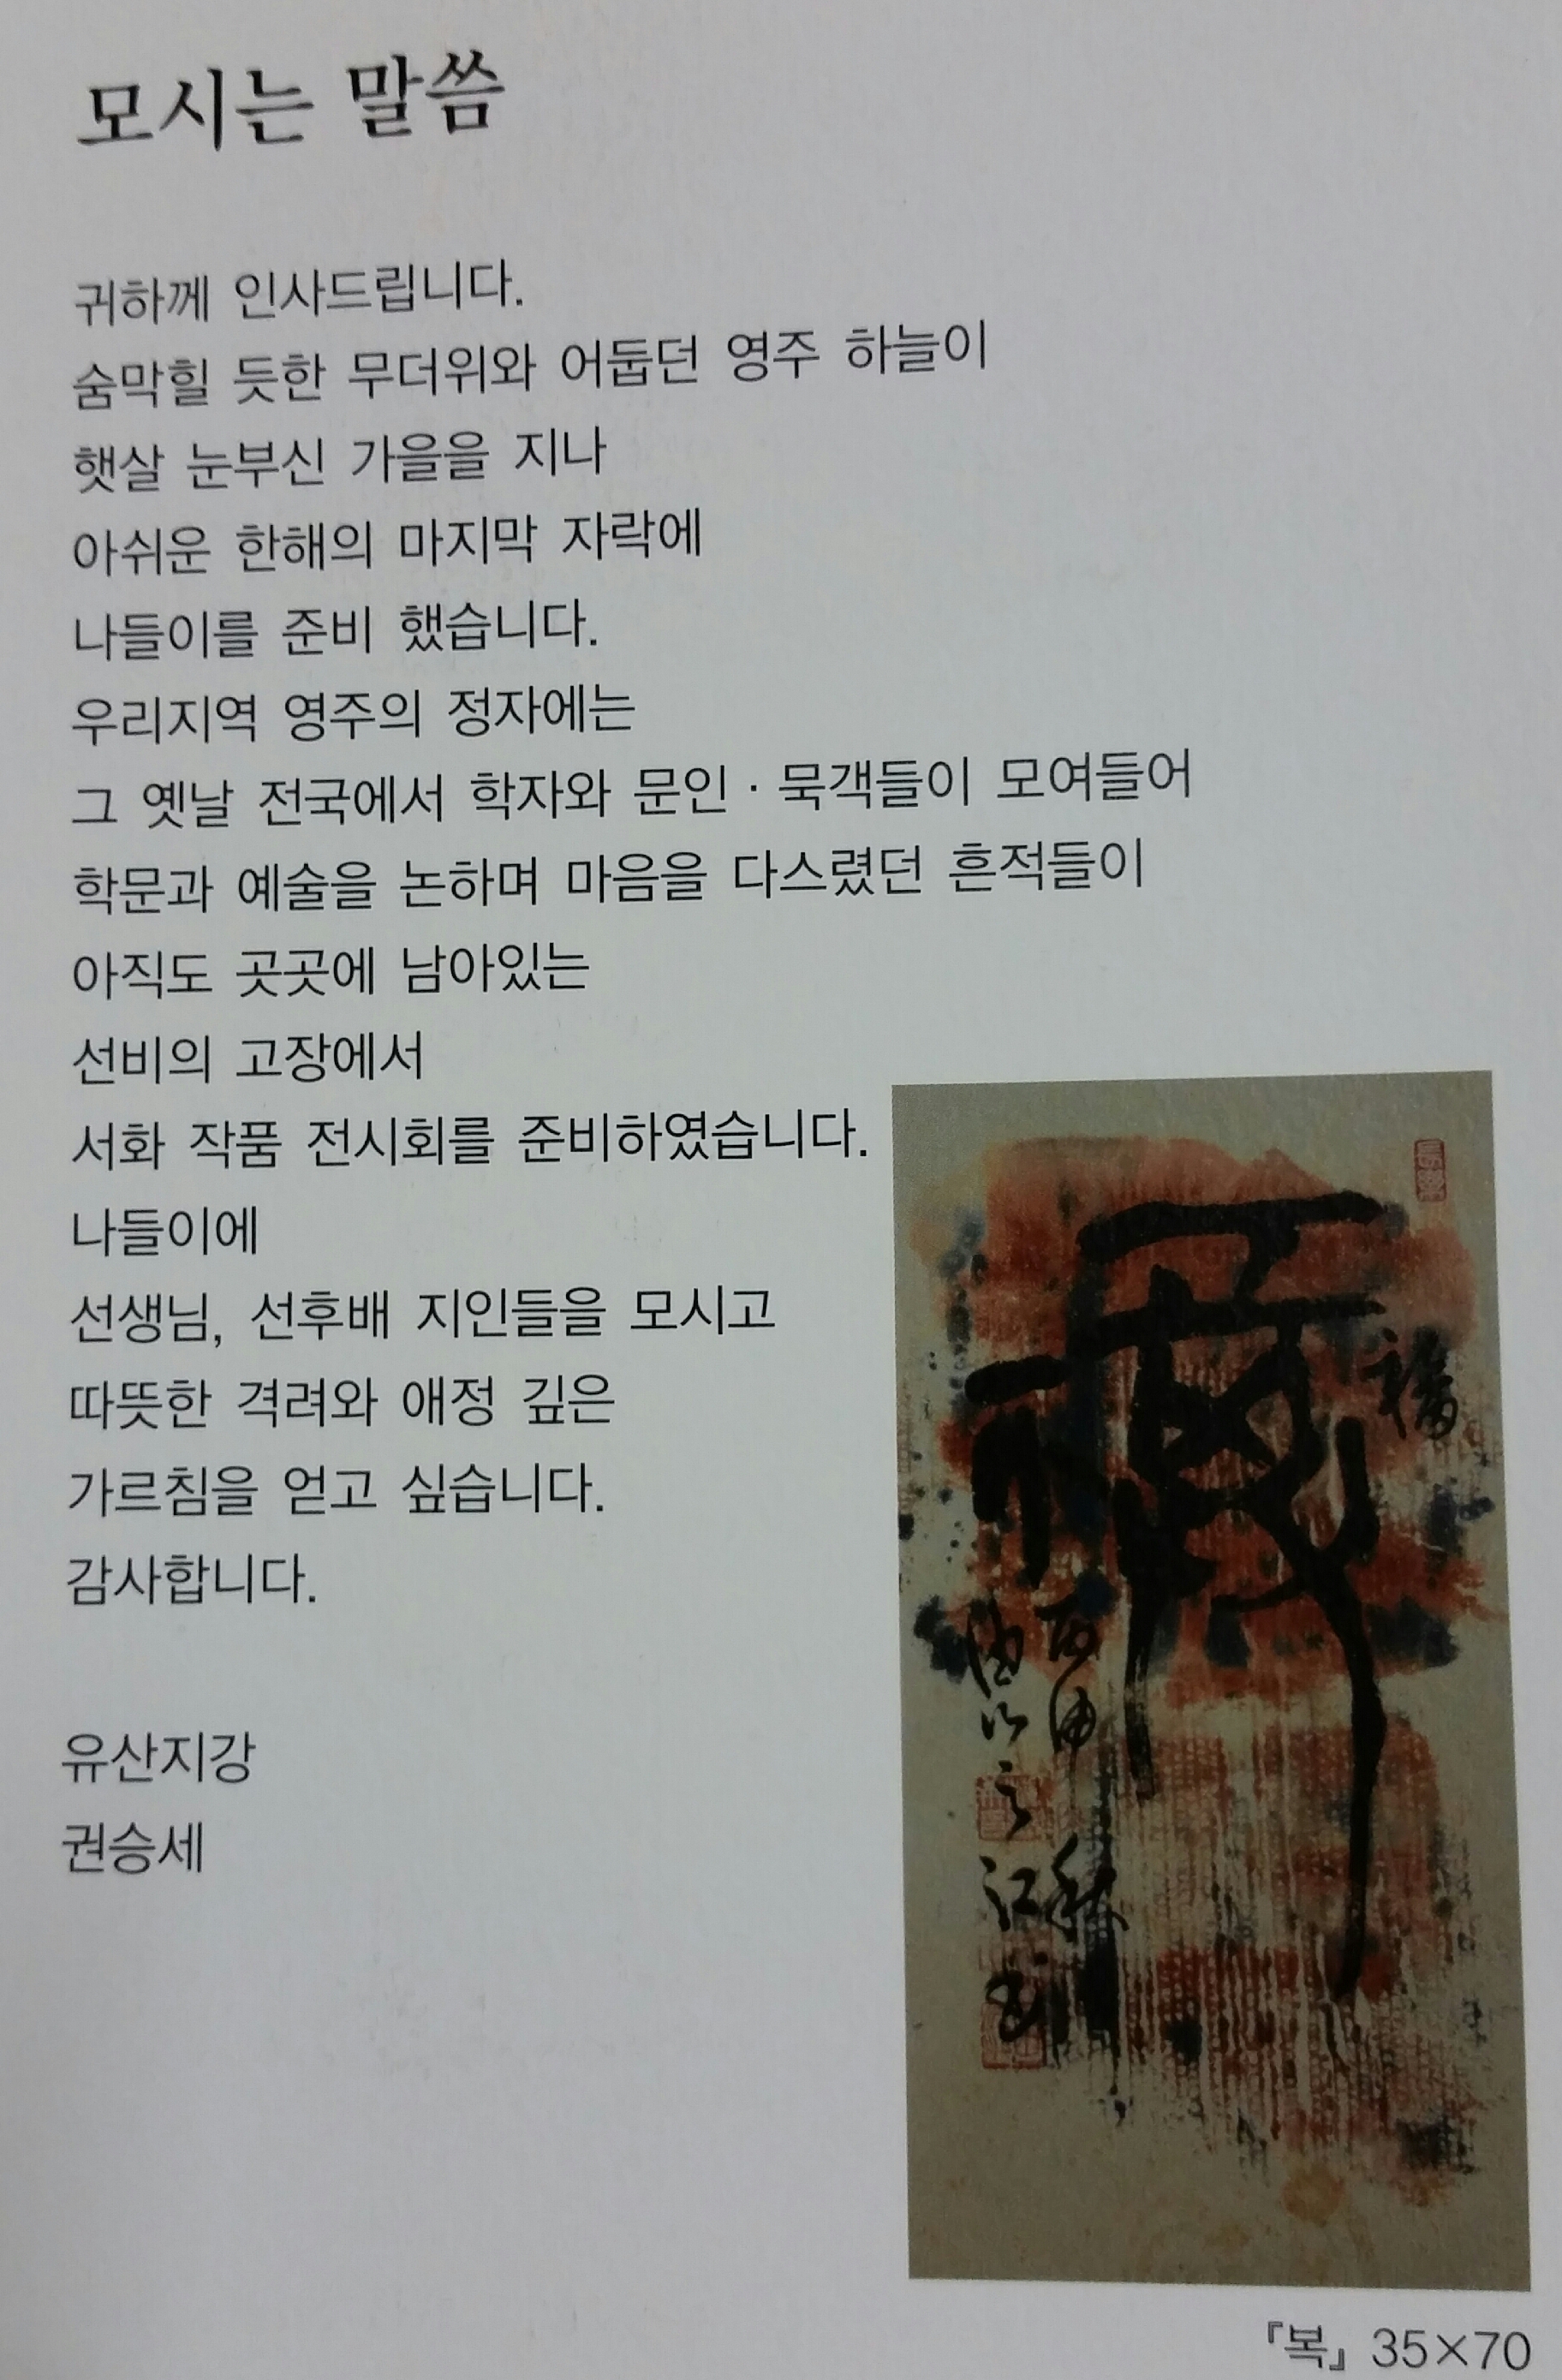 모시는 말씀
귀하께 인사드립니다.
숨막힐 듯한 무더위와 어둡던 영주 하늘이
햇살 눈부신 가을을 지나
아쉬운 한해의 마지막 자락에
나들이를 준비 했습니다.
우리지역 영주의 정자에는
그 옛날 전국에서 학자와 문인·묵객들이 모여들어
학문과 예술을 논하며 마음을 다스렸던 흔적들이
아직도 곳곳에 남아있는
선비의 고장에서
서화 작품 전시회를 준비하였습니다.
나들이에
선생님, 선후배 지인들을 모시고
따뜻한 격려와 애정 깊은
가르침을 얻고 싶습니다.
감사합니다.
유산지강
권승세
福
『복』 35×70